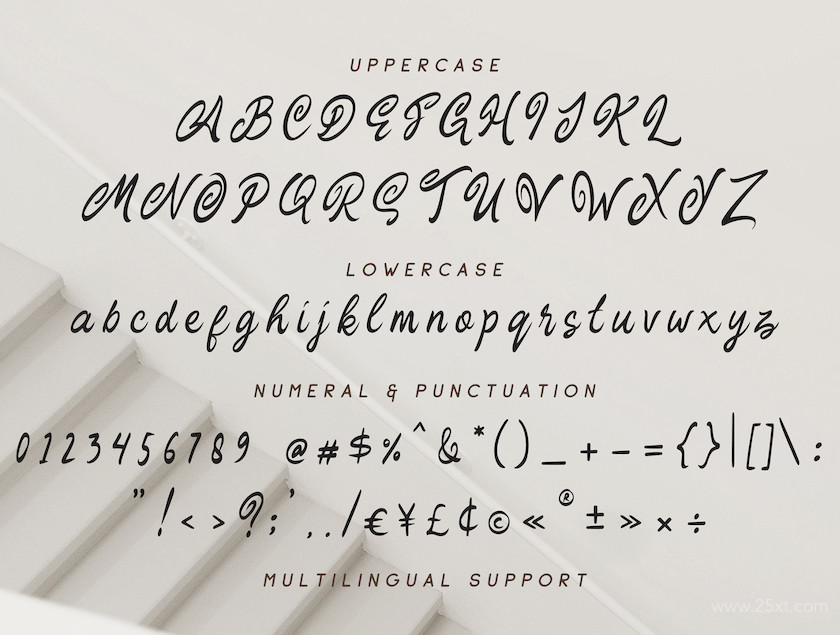 UPPERCASE
ABCDEFGHIJKL
MNOPQRSTUVWXYZ
LOWERCASE
abcdefghijklmnopqrstuvwxyz
NUMERAL & PUNCTUATION
0123456789 @#$%^&*()_+-={}|[]\:
"!<>?;',./€¥£¢©«®±»×÷
MULTILINGUAL SUPPORT
www.25xt.com